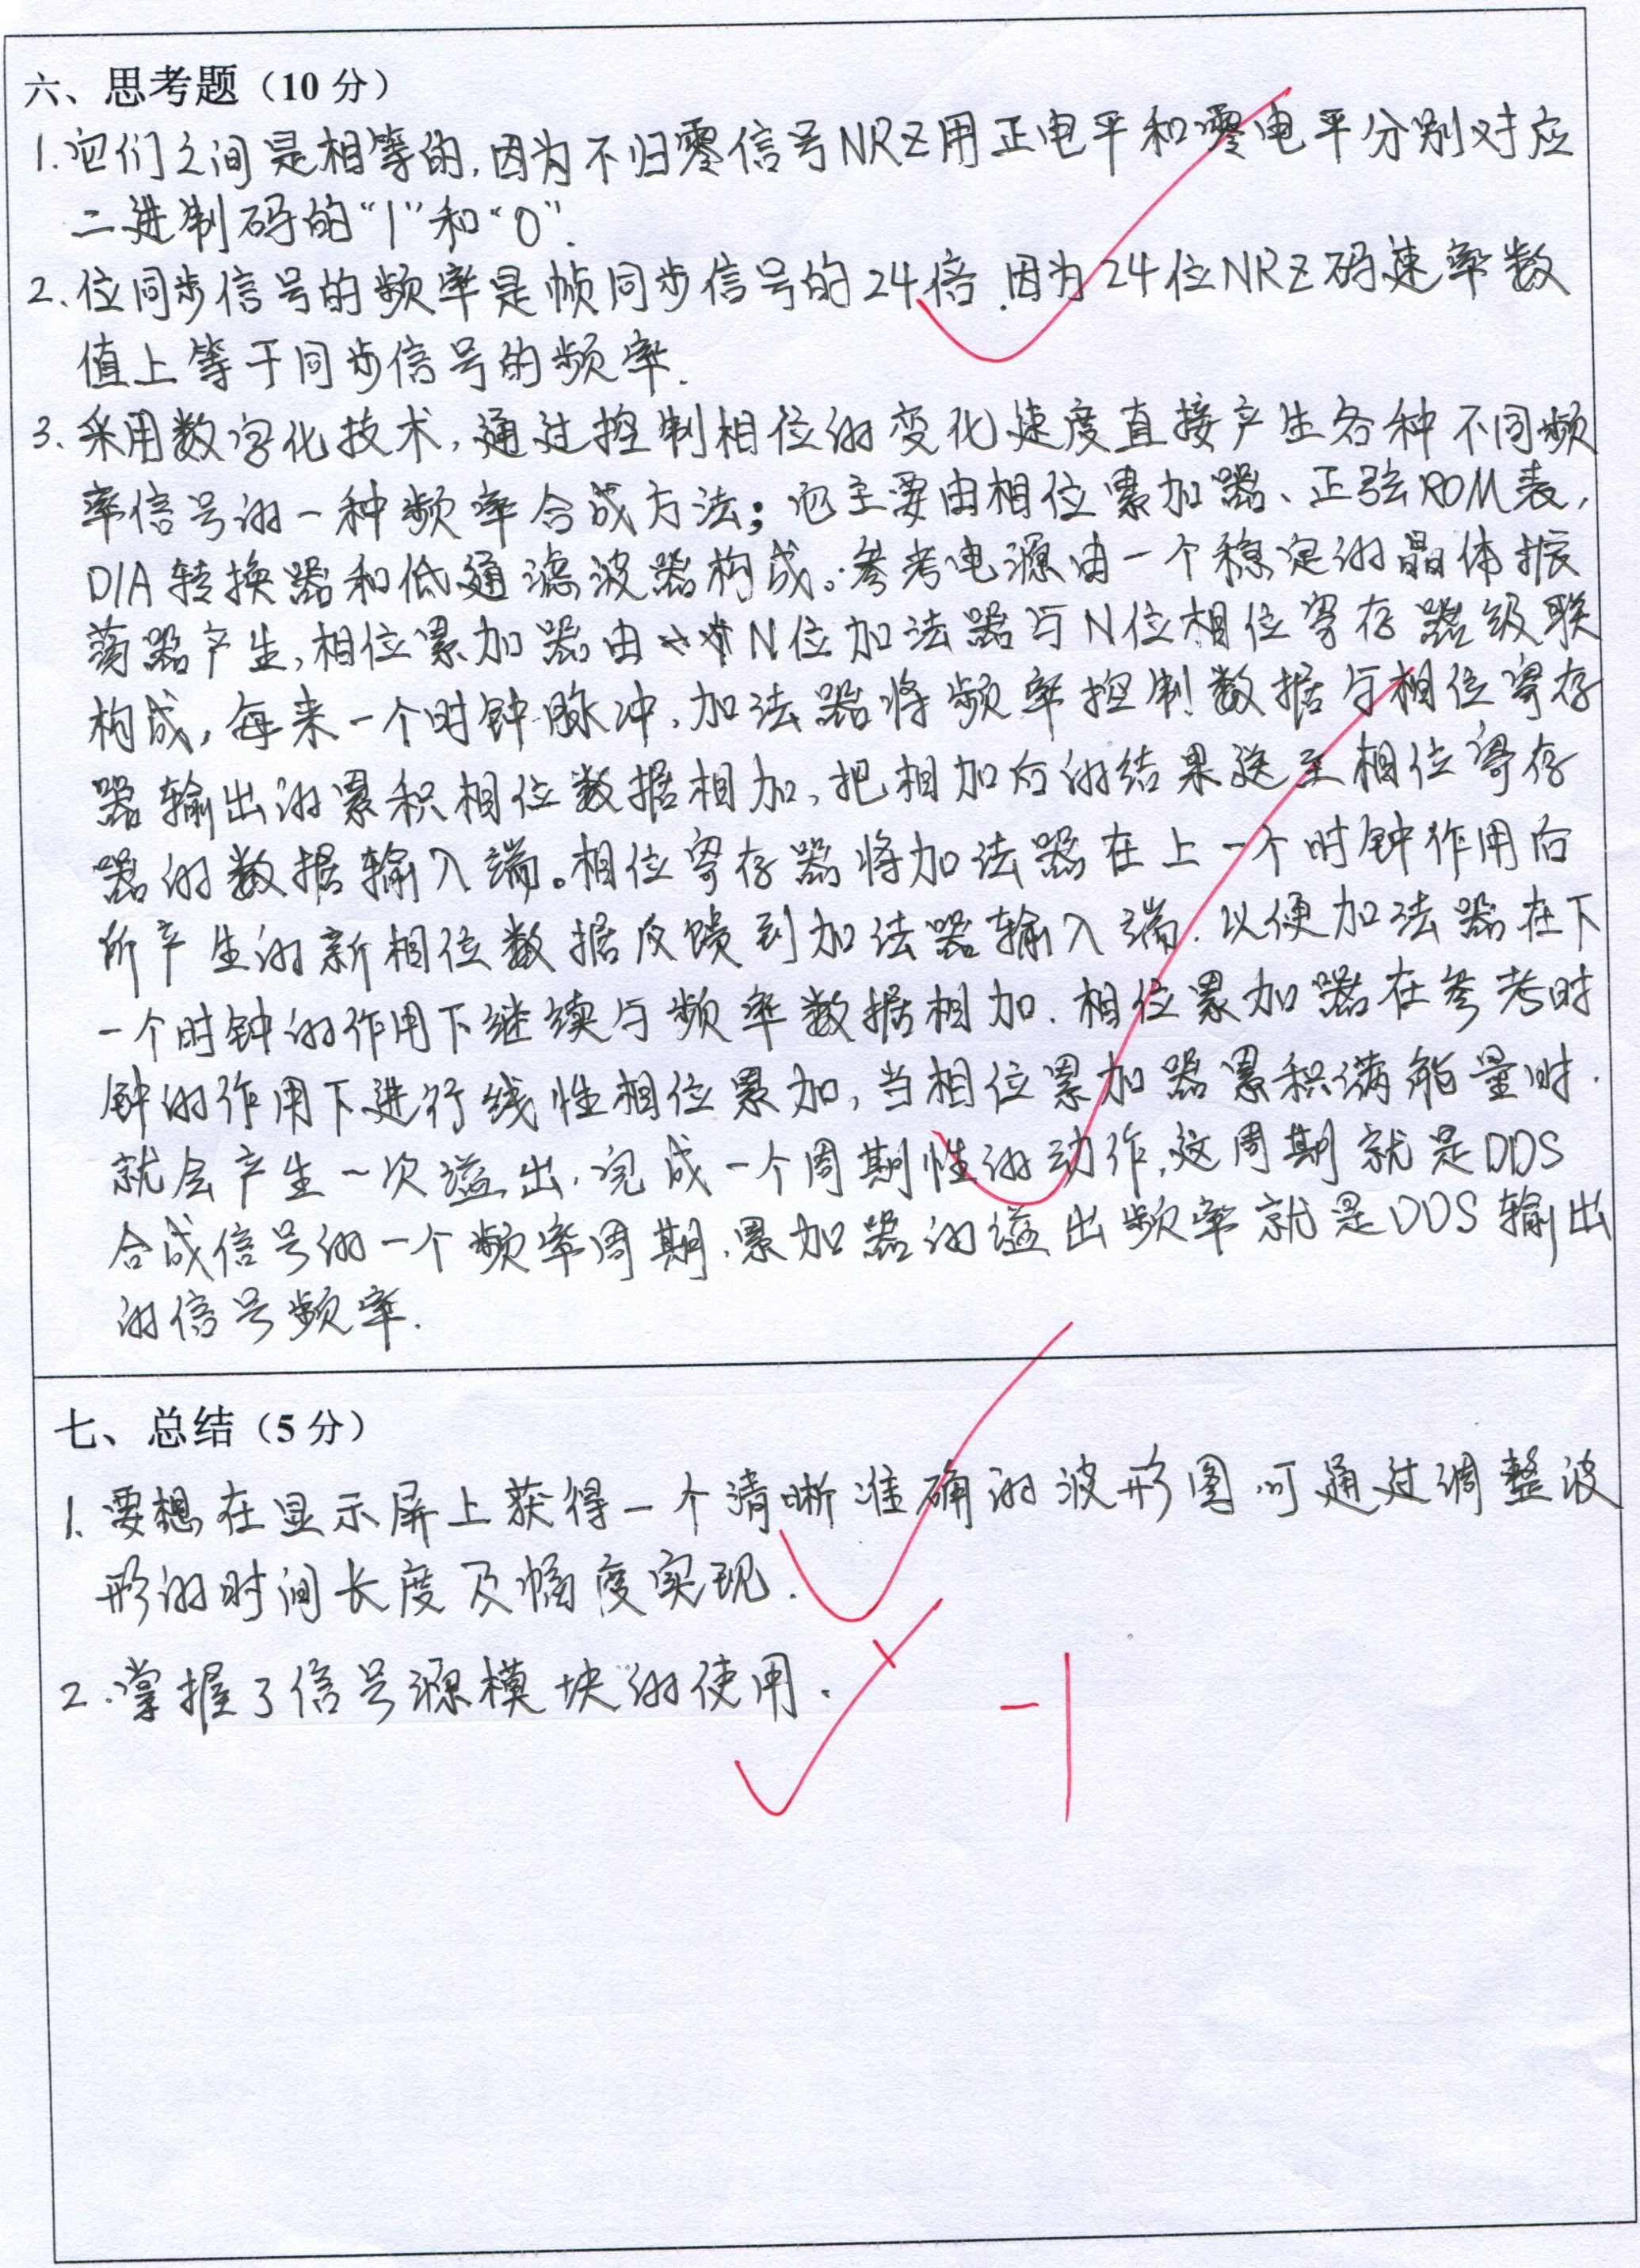 六、思考题（10 分）
1. 它们之间是相等的,因为不归零信号NRZ用正电平和零电平分别对应
二进制码的“1”和“0”.
2、位同步信号的频率是帧同步信号的24倍.因为24位NRZ码速率数
值上等于同步信号的频率.
3、采用数字化技术,通过控制相位的变化速度直接产生各种不同频
率信号的一种频率合成方法；它主要由相位累加器、正弦ROM表,
D/A转换器和低通滤波器构成。参考电源由一个稳定的晶体振
荡器产生,相位累加器由N位加法器与N位相位寄存器级联
构成,每来一个时钟脉冲,加法器将频率控制数据与相位寄存
器输出的累积相位数据相加,把相加后的结果送至相位寄存
器的数据输入端。相位寄存器将加法器在上一个时钟作用后
所产生的新相位数据反馈到加法器输入端.以便加法器在下
一个时钟的作用下继续与频率数据相加.相位累加器在参考时
钟的作用下进行线性相位累加,当相位累加器累积满能量时.
就会产生一次溢出,完成一个周期性的动作,这周期就是DDS
合成信号的一个频率周期,累加器的溢出频率就是DDS输出
的信号频率.
七、总结（5 分）
1. 要想在显示屏上获得一个清晰准确的波形图,可通过调整波
形的时间长度及幅度实现.
2.掌握了信号源模块的使用.
-1